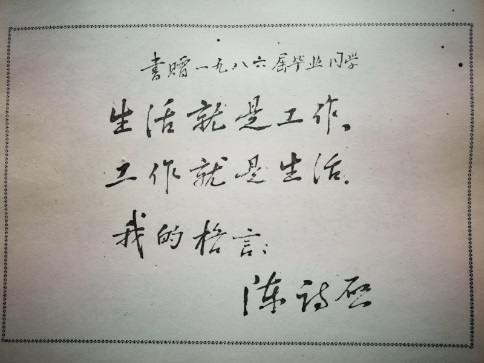 书赠一九八六届毕业同学
生活就是工作、
工作就是生活.
我的格言:
陈诗启